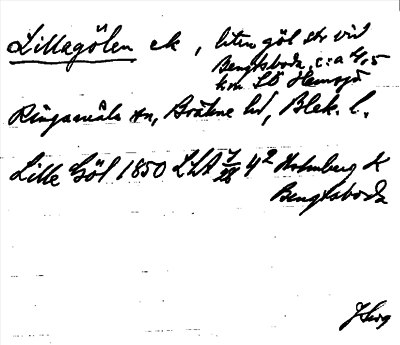 Lillegölen ek, liten göl str vid
Bengtsboda, c:a 4,5
km SO Hemsjö
Ringamåla sn, Bräkne hd, Blek. l.
Lille Göl 1850 LLA 7/28 42 Holmberg K
Bengtsboda